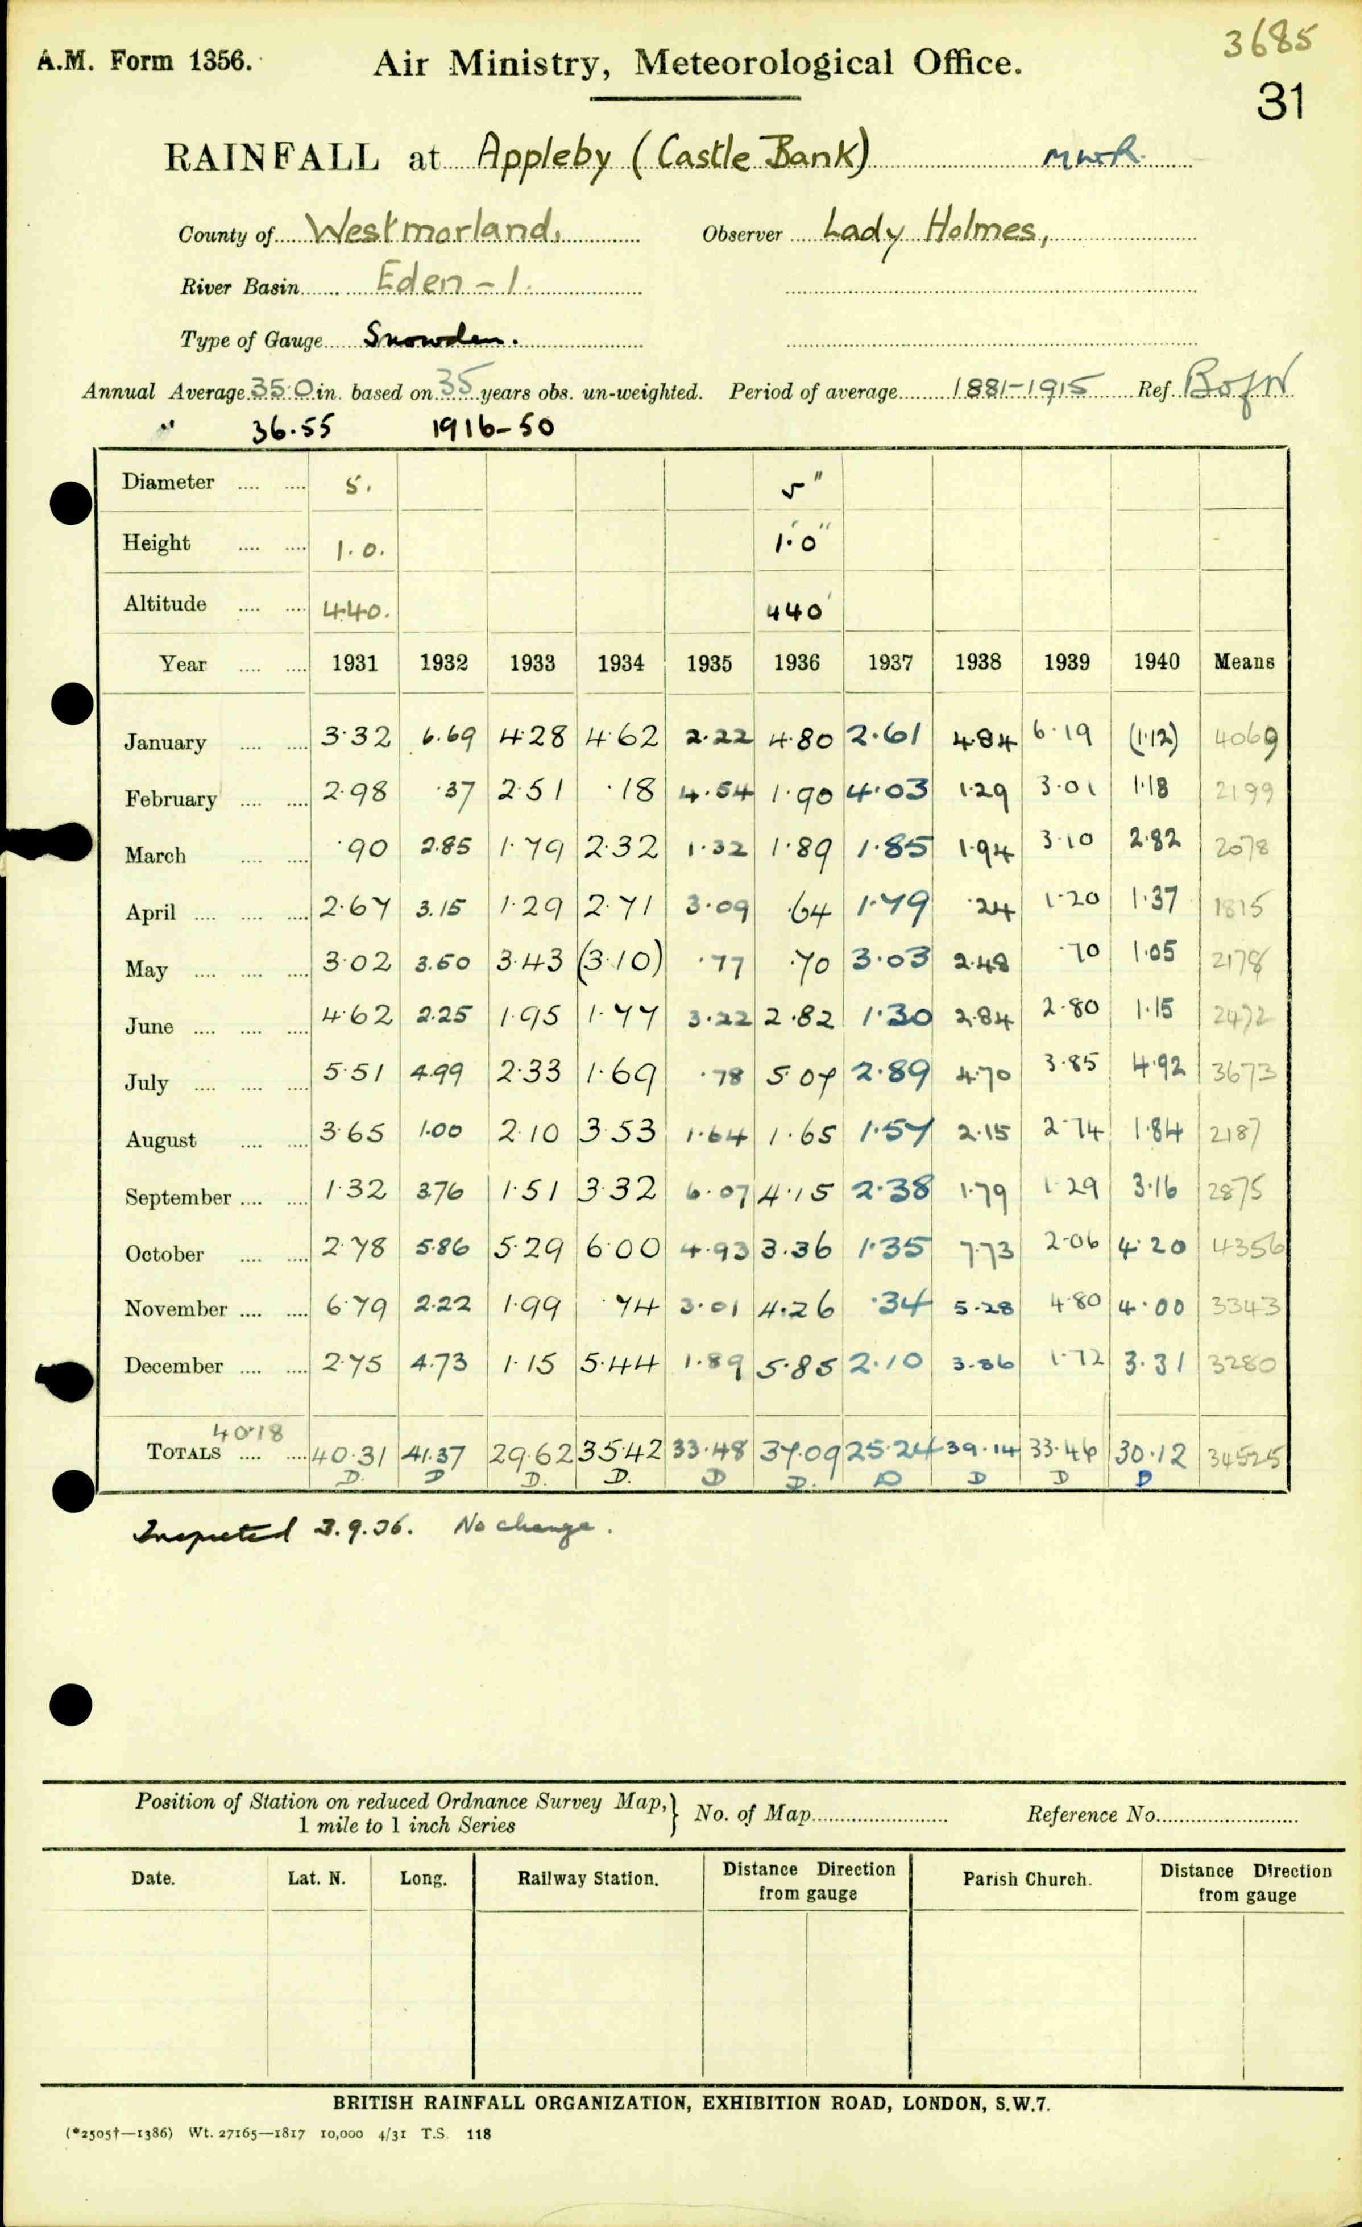 3685
A.M. Form 1356. Air Ministry, Meteorological Office.
31
RAINFALL at Appleby (Castle Bank) MWR
County of Westmorland. Observer Lady Holmes,
River Basin Eden - 1.
Type of Gauge Snowden.
Annual Average 35.0 in. based on 35 years obs. un-weighted. Period of average 1881-1915 Ref. B of W
" 36.55 1916-50
Diameter .... .... 5. 5"
Height .... .... 1.0. 1'.0"
Altitude .... .... 440. 440'
Year .... .... 1931 1932 1933 1934 1935 1936 1937 1938 1939 1940 Means
January .... .... 3.32 6.69 4.28 4.62 2.22 4.80 2.61 4.84 6.19 (1.12) 4069
February .... .... 2.98 .37 2.51 .18 4.54 1.90 4.03 1.29 3.01 1.18 2199
March .... .... .90 2.85 1.79 2.32 1.32 1.89 1.85 1.94 3.10 2.82 2078
April .... .... .... 2.67 3.15 1.29 2.71 3.09 .64 1.79 .24 1.20 1.37 1815
May .... .... .... 3.02 3.50 3.43 (3.10) .77 .70 3.03 2.48 .70 1.05 2178
June .... .... .... 4.62 2.25 1.95 1.77 3.22 2.82 1.30 2.84 2.80 1.15 2472
July .... .... .... 5.51 4.99 2.33 1.69 .78 5.07 2.89 4.70 3.85 4.92 3673
August .... .... 3.65 1.00 2.10 3.53 1.64 1.65 1.57 2.15 2.74 1.84 2187
September .... .... 1.32 3.76 1.51 3.32 6.07 4.15 2.38 1.79 1.29 3.16 2875
October .... .... 2.78 5.86 5.29 6.00 4.93 3.36 1.35 7.73 2.06 4.20 4356
November .... .... 6.79 2.22 1.99 .74 3.01 4.26 .34 5.28 4.80 4.00 3343
December .... .... 2.75 4.73 1.15 5.44 1.89 5.85 2.10 3.86 1.72 3.31 3280
40.18
TOTALS .... .... 40.31 41.37 29.62 35.42 33.48 37.09 25.24 39.14 33.46 30.12 34525
D. D D. D. D D. D D D D
Inspected 3.9.36. No change.
Position of Station on reduced Ordnance Survey Map,
1 mile to 1 inch Series
No. of Map Reference No.
Date. Lat. N. Long. Railway Station. Distance Direction from gauge Parish Church. Distance Direction from gauge
BRITISH RAINFALL ORGANIZATION, EXHIBITION ROAD, LONDON, S.W.7.
(*2505†—1386) Wt. 27165—1817 10,000 4/31 T.S. 118